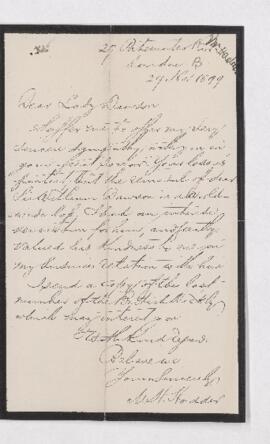 27 Paternoster Row
London
29 Nov 1899
Dear Lady Dawson
Suffer me to offer my very
sincere sympathy with you in
your great sorrow. Your loss is
but the removal of dear
Sir William Dawson is a world-
wide loss. I had an
veneration for him, and greatly
valued his kindness to me
my business relation with him
I send a copy of the last
number of the British Weekly
which may interest you
With kind regards
Believe me
Yours sincerely
M H Hodder